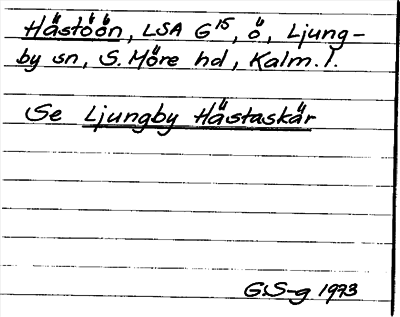 Hästöön, LSA G15, ö, Ljung-
by sn, S. Möre hd, Kalm. l.
Se Ljungby Hästaskär
G.S-g 1973